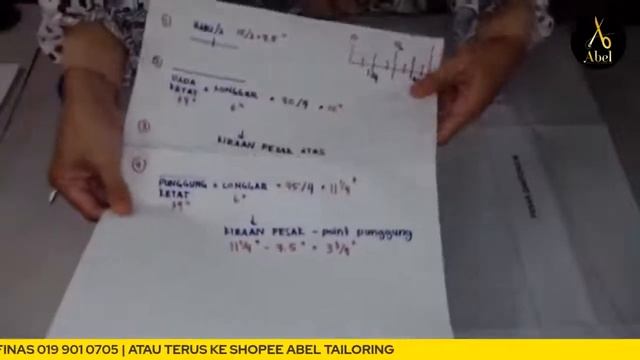 Abel
① BAHU/2 15/2 = 7.5"
②
DADA + LONGGAR = 40/4 = 10"
KETAT 6"
34"
③ ↓
KIRAAN PESAK ATAS
④
PUNGGUNG + LONGGAR = 45/4 = 11 1/4"
KETAT 6"
39"
↓
KIRAAN PESAK - point punggung
11 1/4" - 7.5" = 3 3/4"
FINAS 019 901 0705 | ATAU TERUS KE SHOPEE ABEL TAILORING